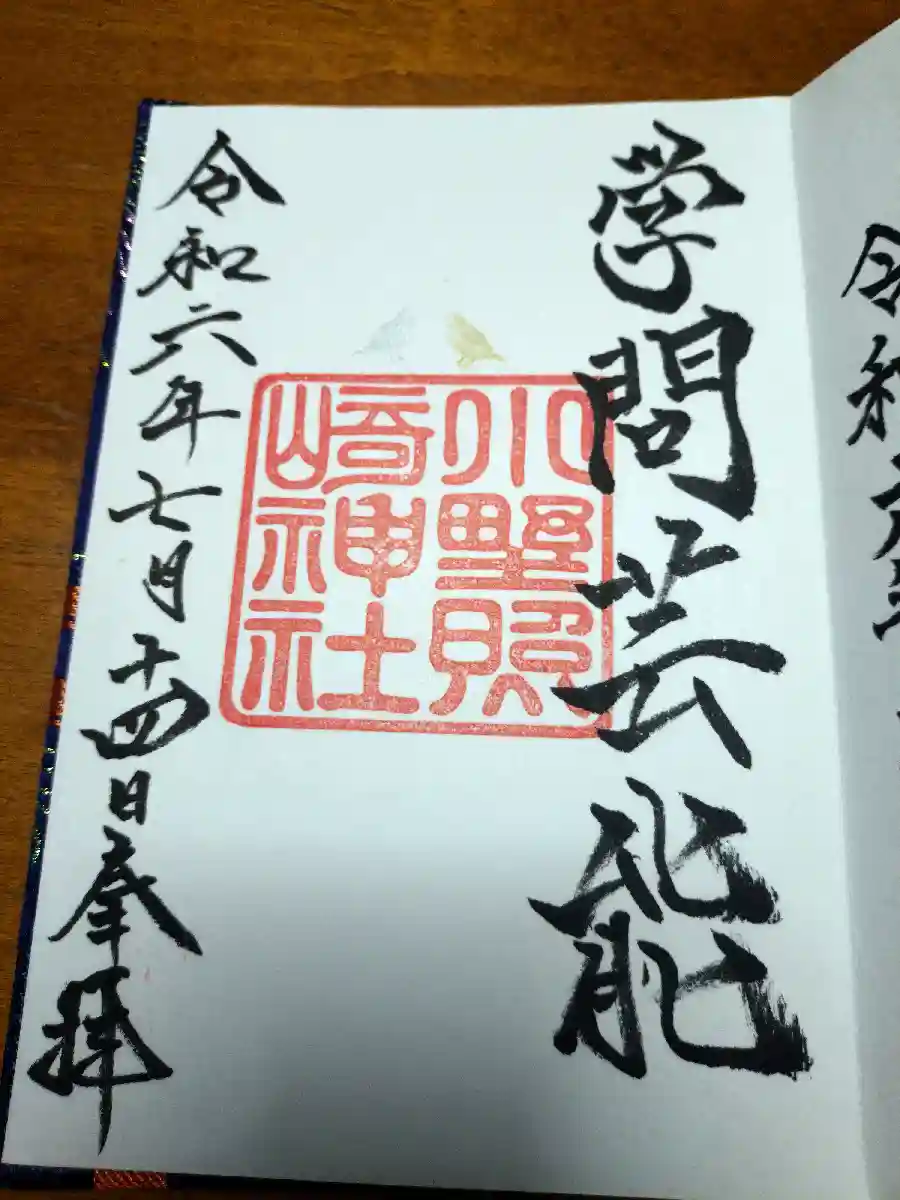 令和
学問芸能
小野照
崎神社
令和六年七月十四日奉拝